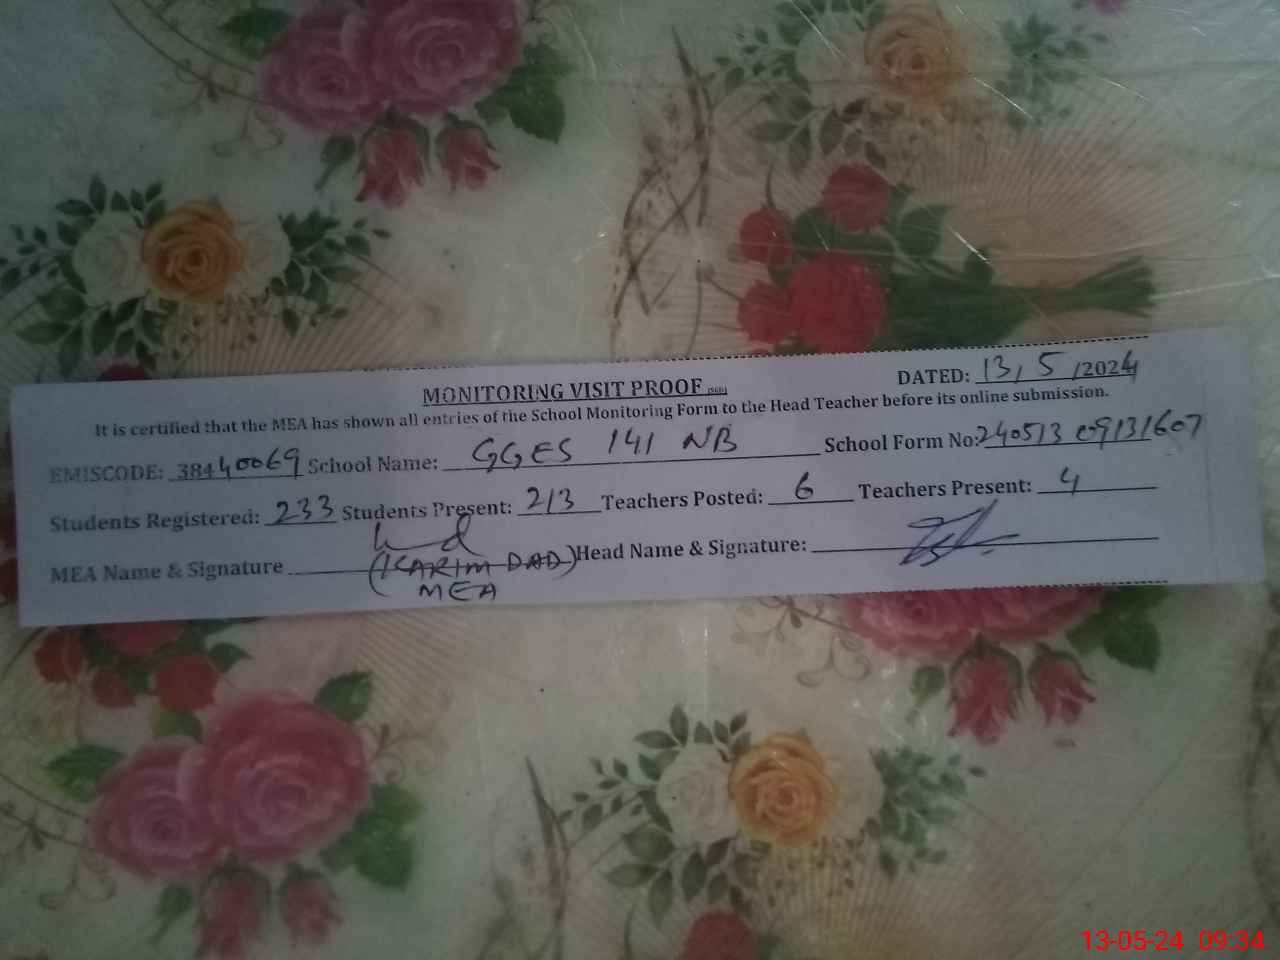 MONITORING VISIT PROOF
DATED: 13, 5 /2024
It is certified that the MEA has shown all entries of the School Monitoring Form to the Head Teacher before its online submission.
EMISCODE: 38440069 School Name: GGES 141 NB School Form No: 240513 09131607
Students Registered: 233 Students Present: 213 Teachers Posted: 6 Teachers Present: 4
MEA Name & Signature (KARIM DAD) Head Name & Signature:
MEA
13-05-24 09:34